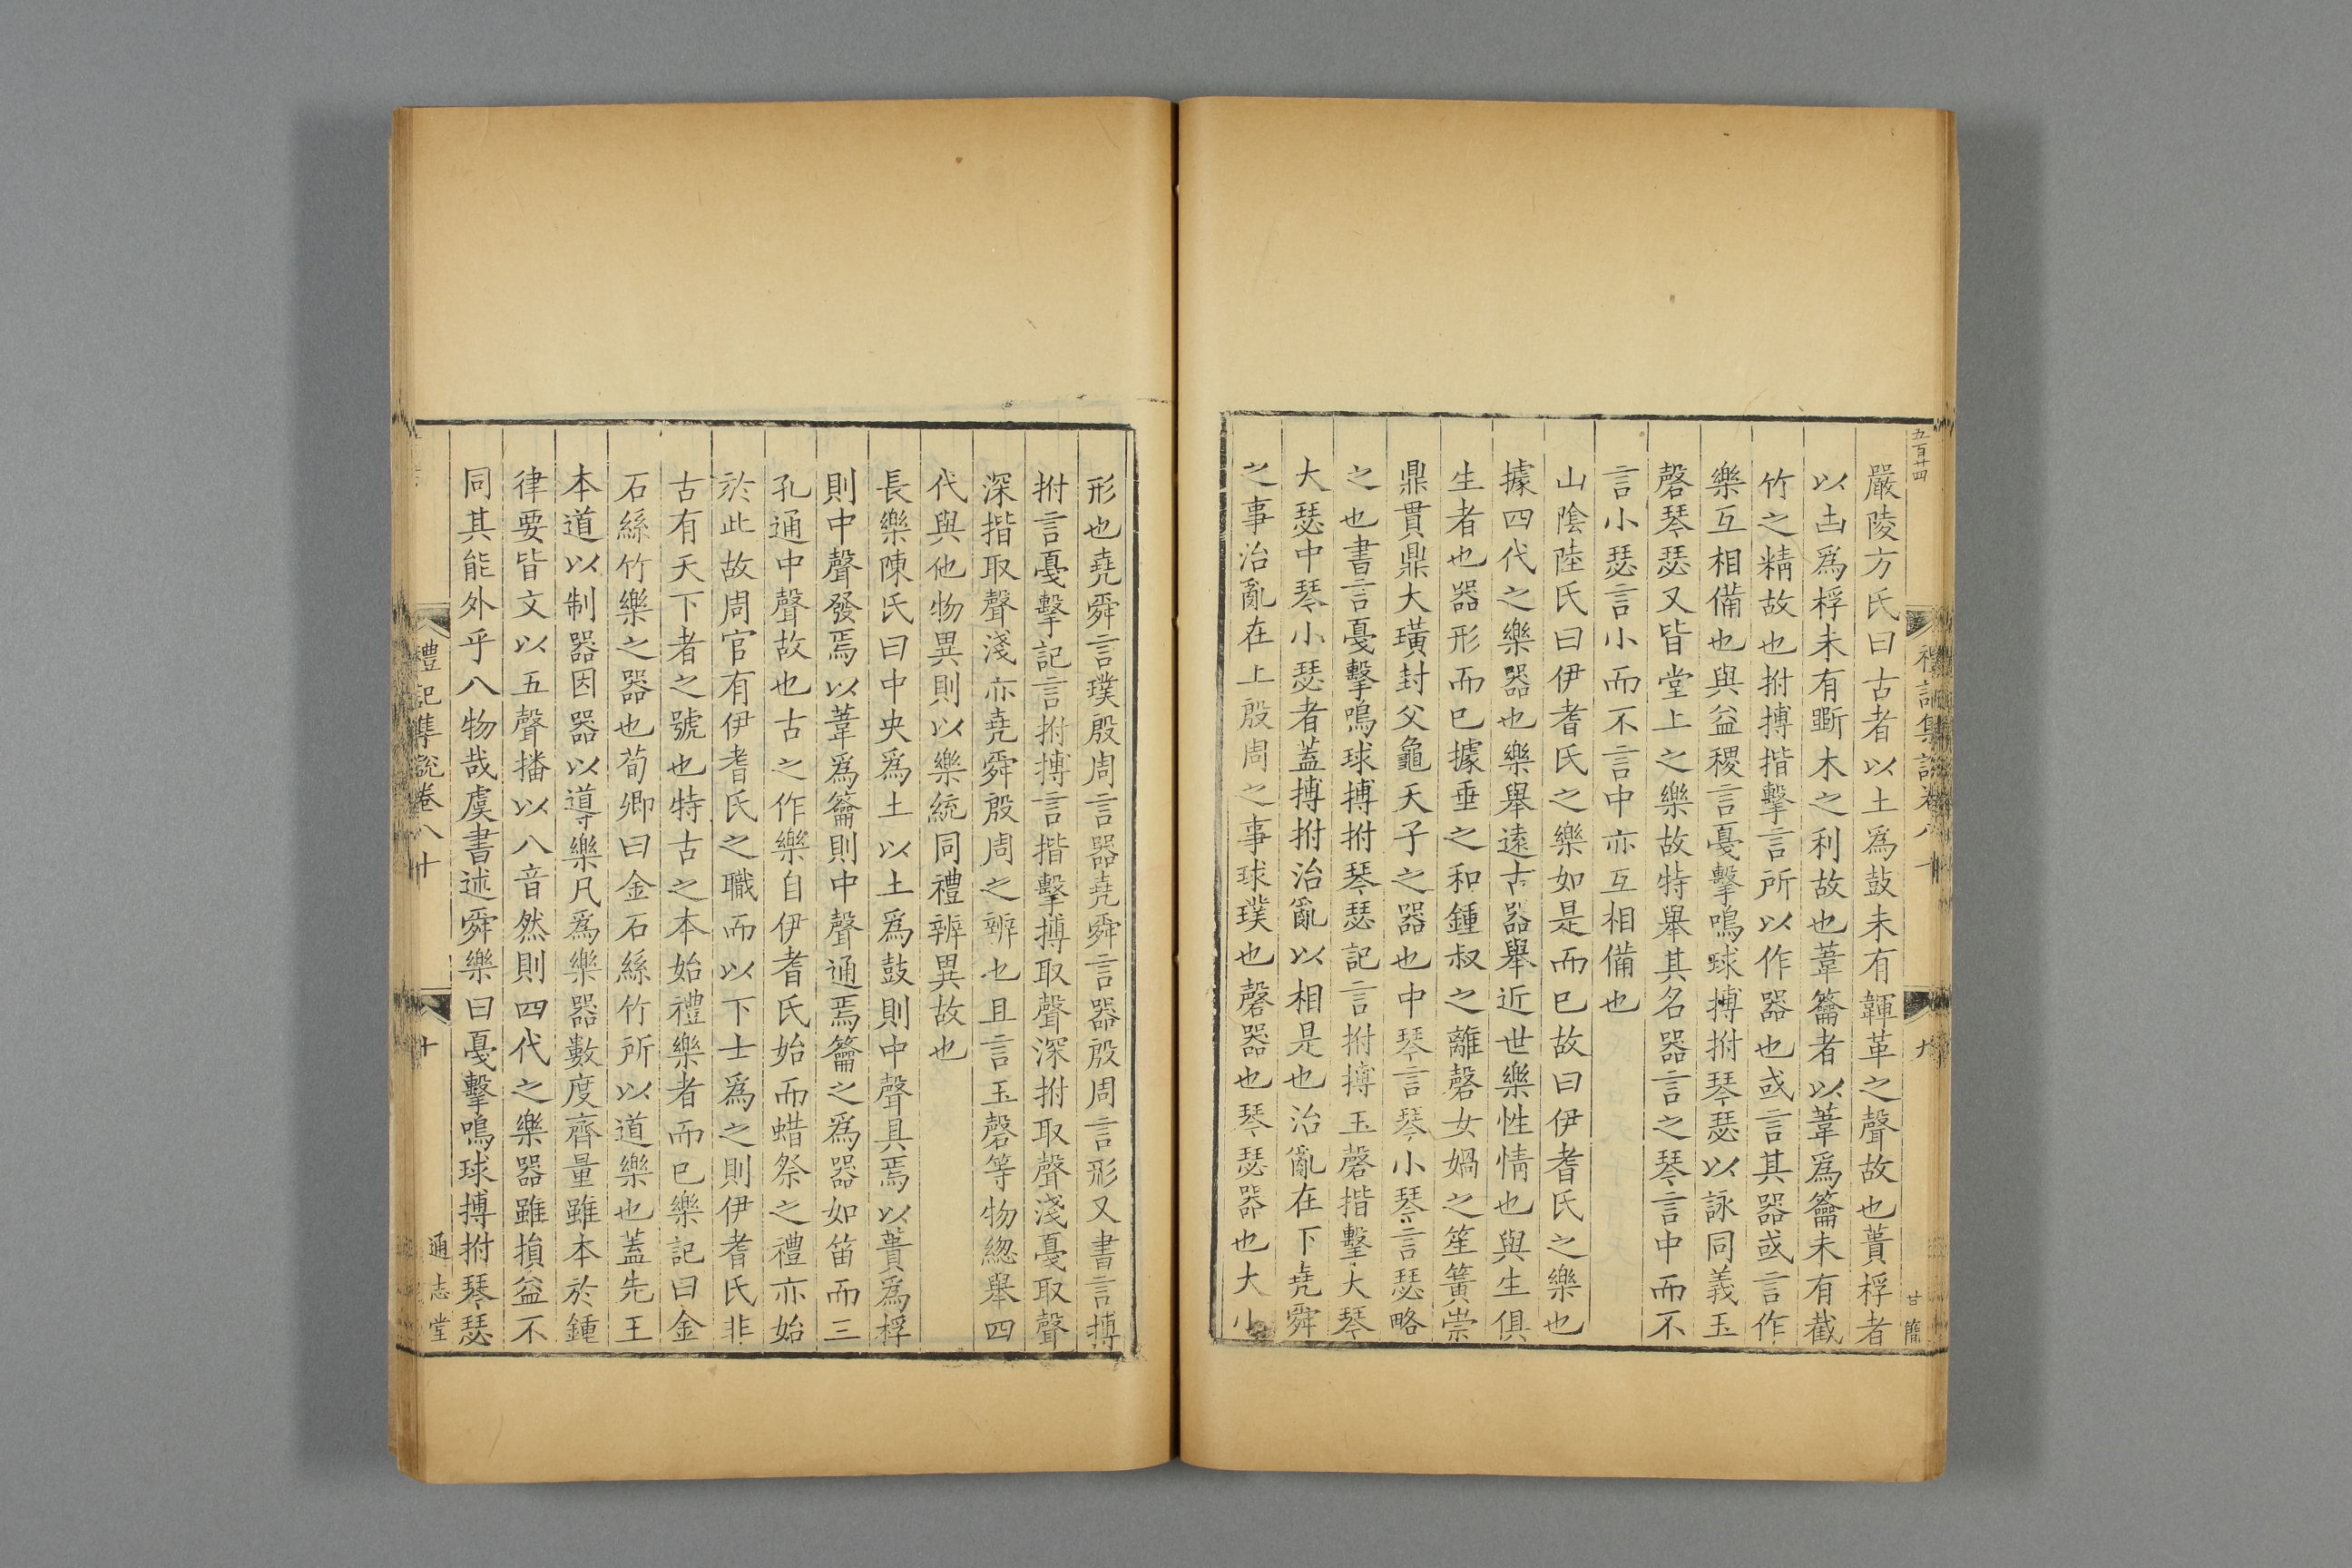 五百廿四
禮記集說卷八十
九
甘簡
嚴陵方氏曰古者以土爲鼓未有韗革之聲故也蕢桴者
以凷爲桴未有斲木之利故也葦籥者以葦爲籥未有截
竹之精故也拊搏揩擊言所以作器也或言其器或言作
樂互相備也與益稷言戛擊鳴球搏拊琴瑟以詠同義玉
磬琴瑟又皆堂上之樂故特舉其名器言之琴言中而不
言小瑟言小而不言中亦互相備也
山陰陸氏曰伊耆氏之樂如是而已故曰伊耆氏之樂也
據四代之樂器也樂舉遠古器舉近世樂性情也與生俱
生者也器形而已據垂之和鍾叔之離磬女媧之笙簧崇
鼎貫鼎大璜封父龜天子之器也中琴言琴小琴言瑟略
之也書言戛擊鳴球搏拊琴瑟記言拊搏玉磬揩擊大琴
大瑟中琴小瑟者蓋搏拊治亂以相是也治亂在下堯舜
之事治亂在上殷周之事球璞也磬器也琴瑟器也大小
形也堯舜言璞殷周言器堯舜言器殷周言形又書言搏
拊言戛擊記言拊搏言揩擊搏取聲深拊取聲淺戛取聲
深揩取聲淺亦堯舜殷周之辨也且言玉磬等物總舉四
代與他物異則以樂統同禮辨異故也
長樂陳氏曰中央爲土以土爲鼓則中聲具焉以蕢爲桴
則中聲發焉以葦爲籥則中聲通焉籥之爲器如笛而三
孔通中聲故也古之作樂自伊耆氏始而蜡祭之禮亦始
於此故周官有伊耆氏之職而以下士爲之則伊耆氏非
古有天下者之號也特古之本始禮樂者而已樂記曰金
石絲竹樂之器也荀卿曰金石絲竹所以道樂也蓋先王
本道以制器因器以導樂凡爲樂器數度齊量雖本於鍾
律要皆文以五聲播以八音然則四代之樂器雖損益不
同其能外乎八物哉虞書述舜樂曰戛擊鳴球搏拊琴瑟
禮記集說卷八十
十
通志堂